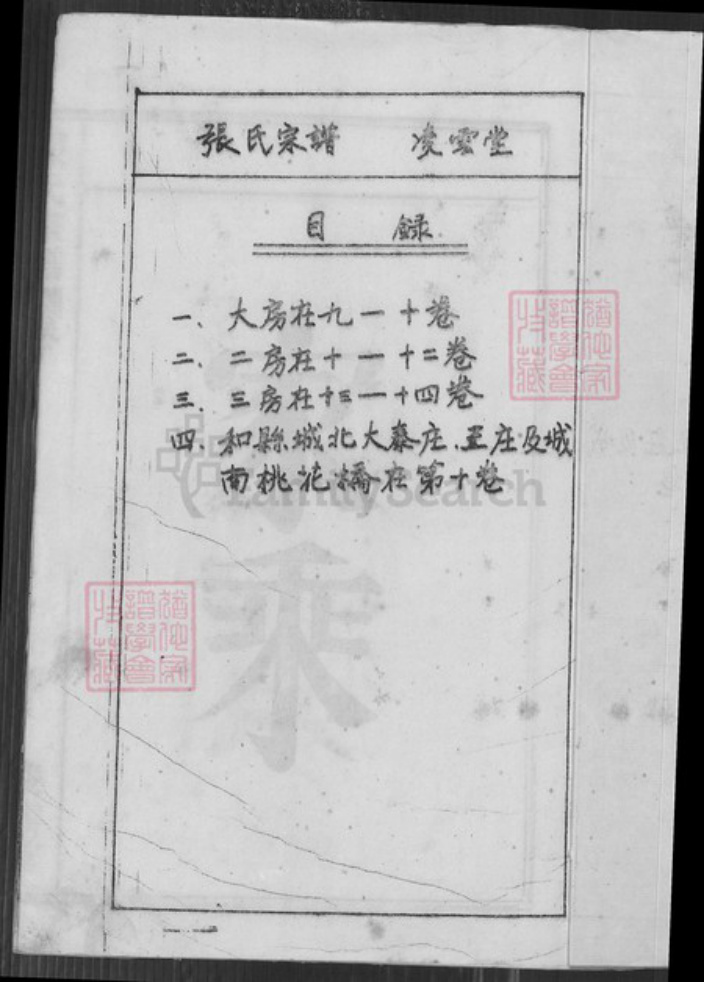 張氏宗譜 凌雲堂
目 録
一、大房在九一十卷
二、二房在十一十二卷
三、三房在十三一十四卷
四、和縣城北大秦庄、王庄及城
南桃花橋在第十卷
FamilySearch
猶他家
譜學會
牡藏
猶他家
譜學會
牡藏